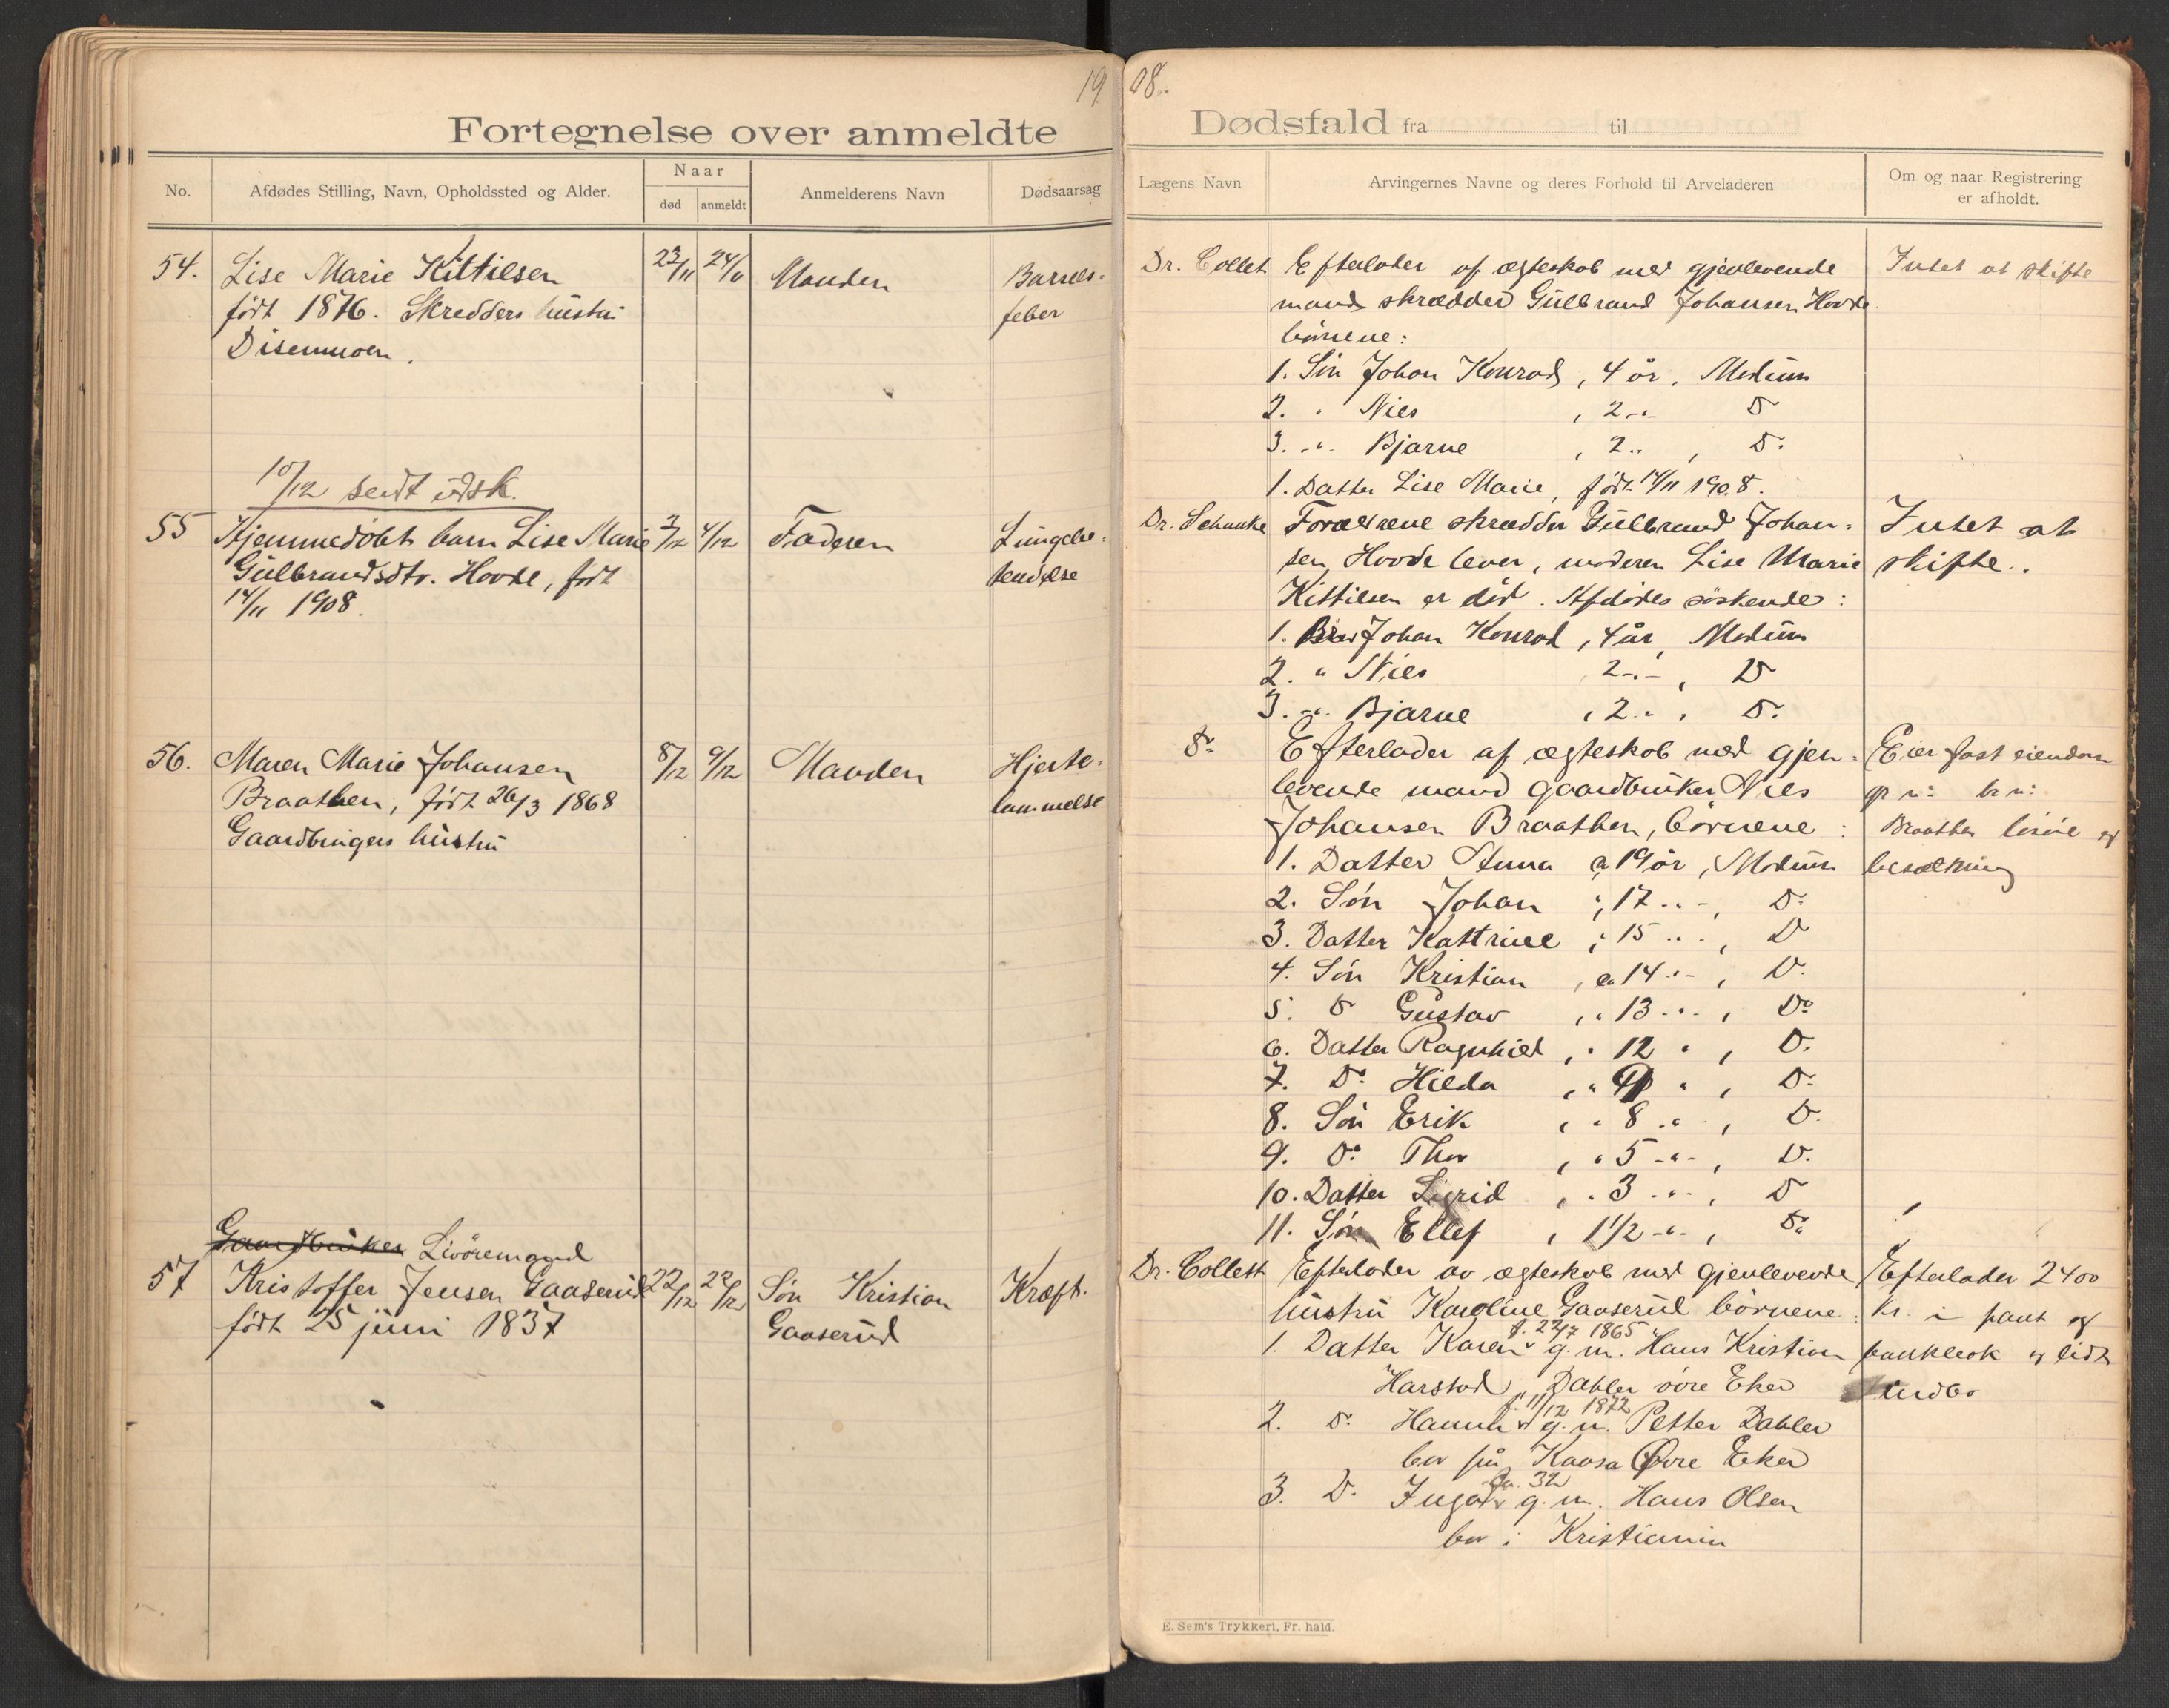 1908.
Fortegnelse over anmeldte Dødsfald fra til
No.
Afdødes Stilling, Navn, Opholdssted og Alder.
Naar
død
anmeldt
Anmelderens Navn
Dødsaarsag
Lægens Navn
Arvingernes Navne og deres Forhold til Arveladeren
Om og naar Registrering
er afholdt.
54. Lise Marie Kittilsen
født 1876. Skredders hustru
Disenmoen.
23/11 24/11 Manden
Barsels-
feber
Dr. Collett
Efterlader af ægteskab med gjenlevende
mand skrædder Gulbrand Johansen Hovde
børnene:
1. Søn Johan Konrad, 4 år, Modum
2. " Nils , 2 -"- Do
3. -"- Bjarne , 2 " , Do
1. Datter Lise Marie, født 14/11 1908.
Intet at skifte
10/12 sendt udsk.
55 Hjemmedøbt barn Lise Marie
Gulbrandsdtr. Hovde, født
14/11 1908.
3/12 4/12 Faderen
Lungebe-
tendelse
Dr. Schanke
Forældrene skrædder Gulbrand Johan-
sen Hovde lever, moderen Lise Marie
Kittilsen er død. Afdødes søskende:
1. Bror Johan Konrad, 4 år, Modum
2. " Nils 2 -"- , Do
3. -"- Bjarne , 2 " , Do
Intet at
skifte.
56. Maren Marie Johansen
Braathen, født 26/3 1868
Gaardbrugers hustru
8/12 9/12 Manden
Hjerte-
lammelse
Do
Efterlader af ægteskab med gjen-
levende mand gaardbruker Nils
Johansen Braathen, børnene:
1. Datter Anna a 19 år, Modum
2. Søn Johan " 17 -"-, Do
3. Datter Kattrine " 15 -"-, Do
4. Søn Kristian , a 14 -"- , Do
5. Do Gustav , " 13 -"- , Do
6. Datter Ragnhild , " 12 " , Do
7. Do Hilda , " " , Do
8. Søn Erik , " 8 -"- , Do
9. Do Thor , " 5 -"- , Do
10. Datter Sigrid , " 3 -"- , Do
11. Søn Ellef , 1 1/2 -"- , Do
Eier fast eiendom
gr no br no
Braathen løsøre og
besætning
Gaardbruker Livøremand
57 Kristoffer Jensen Gaaserud
født 25 juni 1837
22/12 22/12 Søn Kristian
Gaaserud
Kræft.
Dr. Collett
Efterlader av ægteskab med gjenlevende
hustru Karoline Gaaserud børnene:
f. 22/7 1865
1. Datter Karen g. m. Hans Kristian
Harstad, Dahler øvre Eker
f. 11/12 1872
2. Do Hanna g. m. Petter Dahler
bor på Kaasa Øvre Eker
ca. 32
3. Do Inga g. m. Hans Olsen
bor i Kristiania
Efterlader 2400
kr. i pant og
bankbok og lidt
indbo
E. Sem's Trykkeri, Fr.hald.